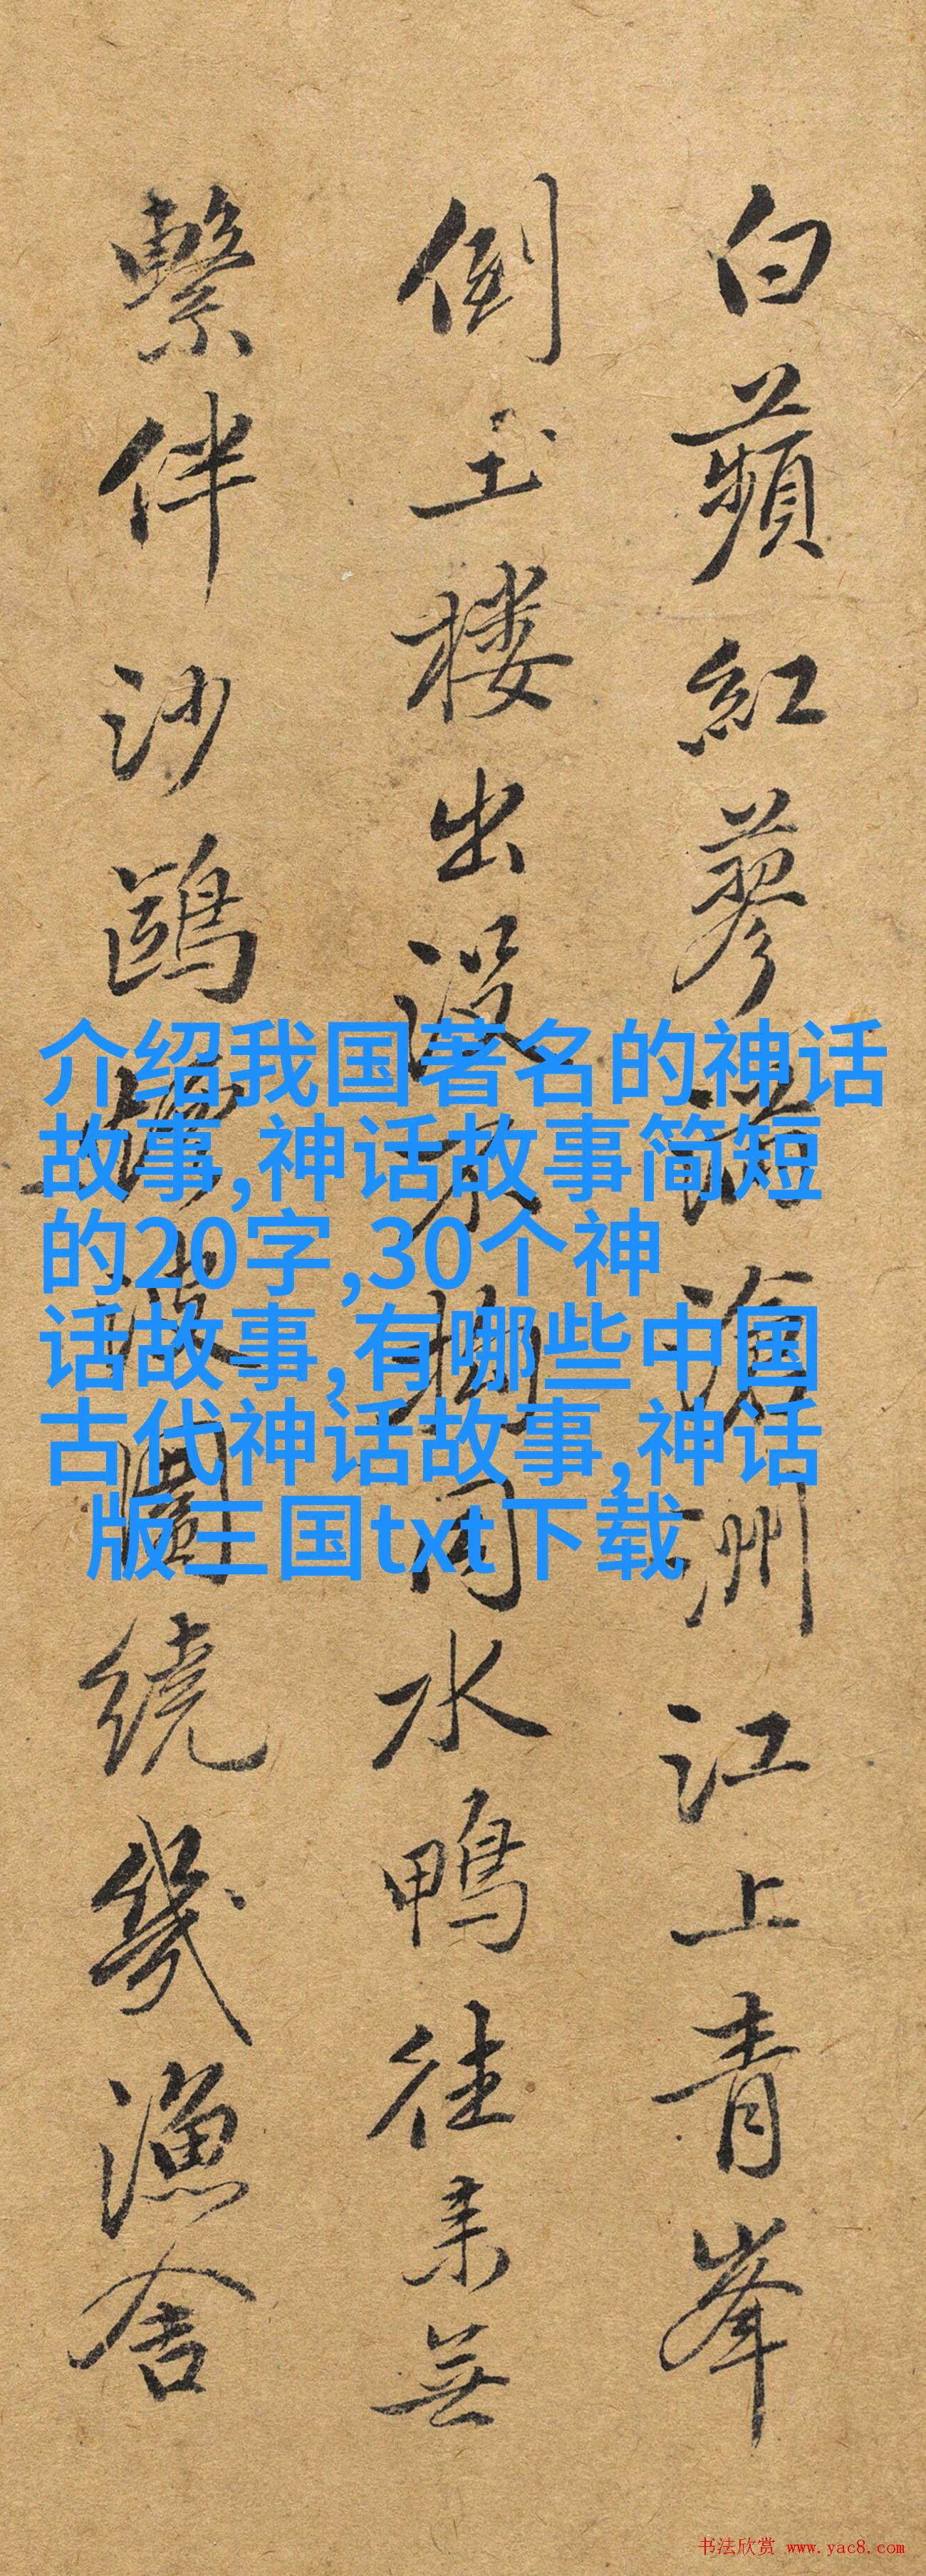 白蘋紅蓼滿滄洲江上青峯
倒玉楼出没不拋同水鴨往来無
繋伴沙鷗波闊绕幾漁舍
介绍我国著名的神话
故事,神话故事简短
的20字,30个神
话故事,有哪些中国
古代神话故事,神话
版三国txt下载
书法欣赏 www.yac8.com